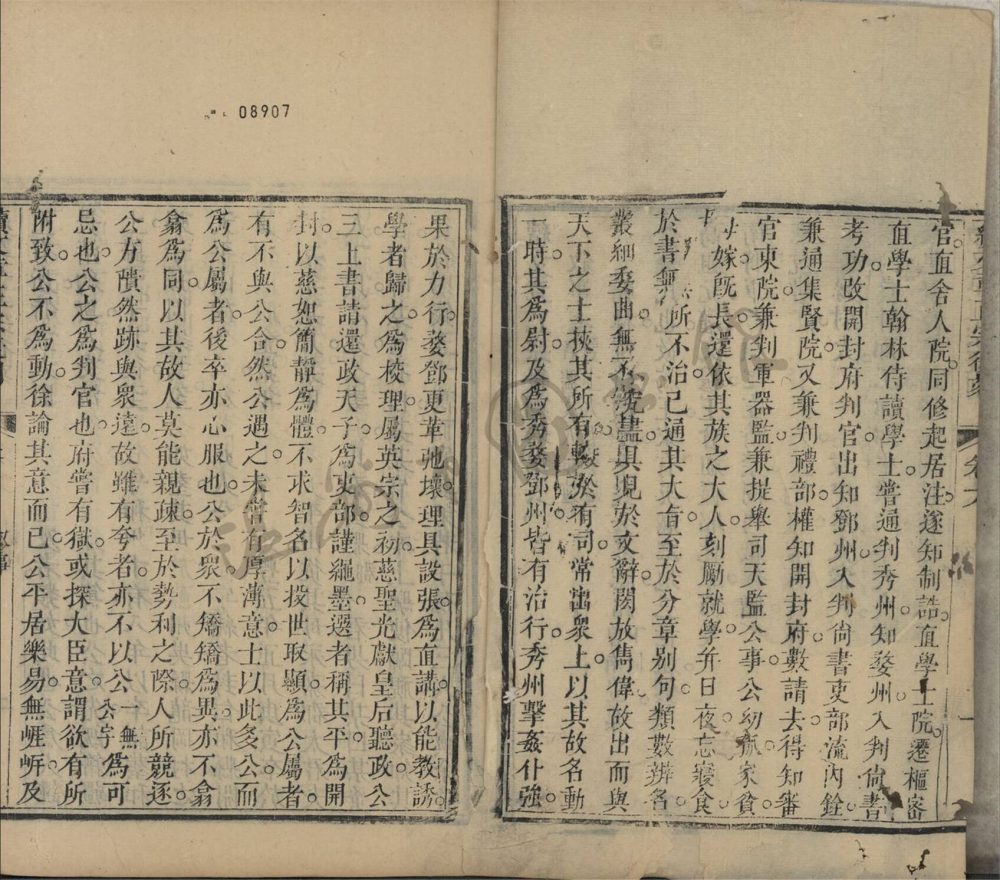 官直舍人院同修起居注遂知制誥直學士院遷樞密
直學士翰林侍讀學士嘗通判秀州知婺州入判尚書
考功改開封府判官出知鄧州入判尚書吏部流內銓
兼通集賢院又兼判禮部權知開封府數請去得知審
官東院兼判軍器監兼提舉司天監公事公幼孤家貧
嫁既長還依其族之大人刻勵就學并日夜忘寢食
於書無所不治已通其大旨至於分章別句類數辨名
叢細委曲無不究盡具見於文辭閎放雋偉故出而與
天下之士挾其所有較於有司常出眾上以其故名動
一時其為尉及為秀婺鄧州皆有治行秀州擊姦仆強
果於力行婺鄧更革弛壞理具設張為直講以能教誘
學者歸之為校理屬英宗之初慈聖光獻皇后聽政公
三上書請還政天子為吏部謹繩墨選者稱其平為開
封以慈恕簡靜為體不求智名以投世取顯為公屬者
有不與公合然公遇之未嘗有厚薄意士以此多公而
為公屬者後卒亦心服也公於眾不矯矯為異亦不翕
翕為同以其故人莫能親疎至於勢利之際人所競逐
公方隤然跡與眾遠故雖有夸者亦不以公一無公字為可
忌也公之為判官也府嘗有獄或探大臣意謂欲有所
附致公不為動徐論其意而已公平居樂易無崖岸及
08907